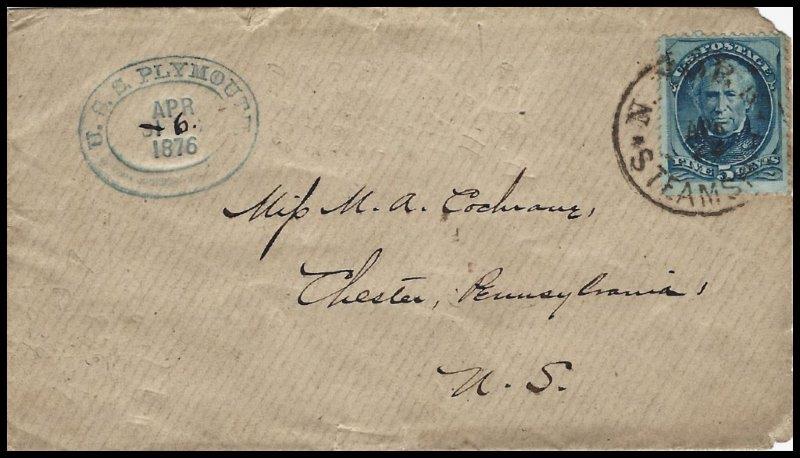 U.S.S. PLYMOUTH
APR
6.
1876
U.S. POSTAGE
FIVE 5 CENTS
N.
★STEAMS
Miss M. A. Cochrane,
Chester, Pennsylvania,
U. S.